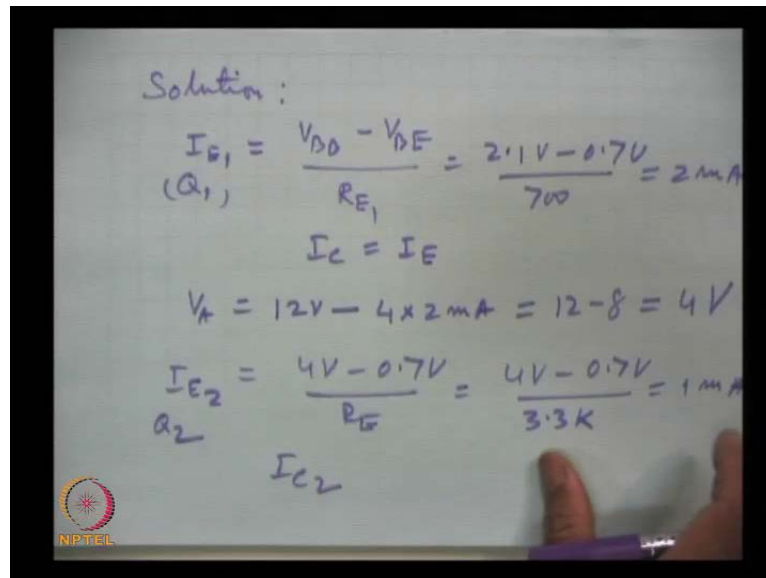 Solution :
I_E1 = (V_BB - V_BE) / R_E1 = (2.1V - 0.7V) / 700 = 2 mA
(Q1)
I_C = I_E
V_A = 12V - 4 × 2 mA = 12 - 8 = 4V
I_E2 = (4V - 0.7V) / R_E = (4V - 0.7V) / 3.3K = 1 mA
Q2
I_C2
NPTEL